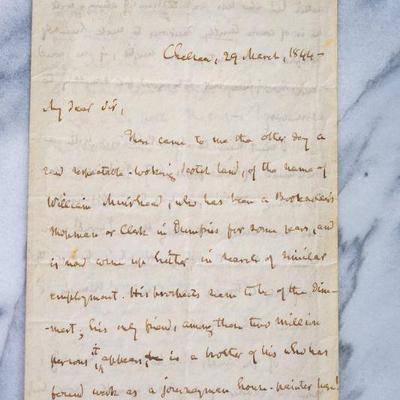 Chelsea, 29 March, 1844 —
My dear Sir,
There came to me the other day a
respectable-looking Scotch lad, of the name of
William Muirhead, who has been a Bookseller's
Shopman or Clerk in Dumfries for some years, and
is now come up hither in search of similar
employment. His prospects seem to be of the dim-
mest; his only friend, among these two million
persons it appears, is a brother of his who has
found work as a journeyman house-painter here!